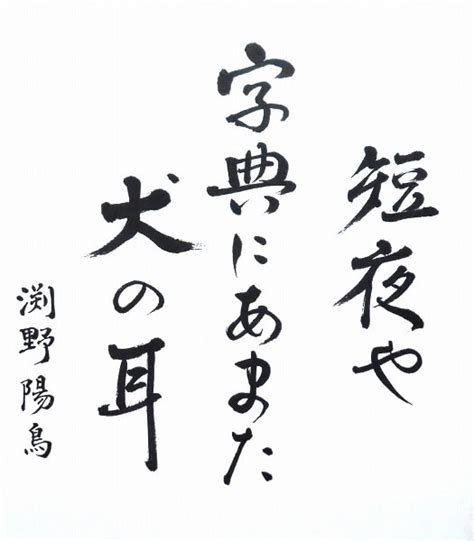 短夜や
字典にあまた
犬の耳
渕野陽鳥